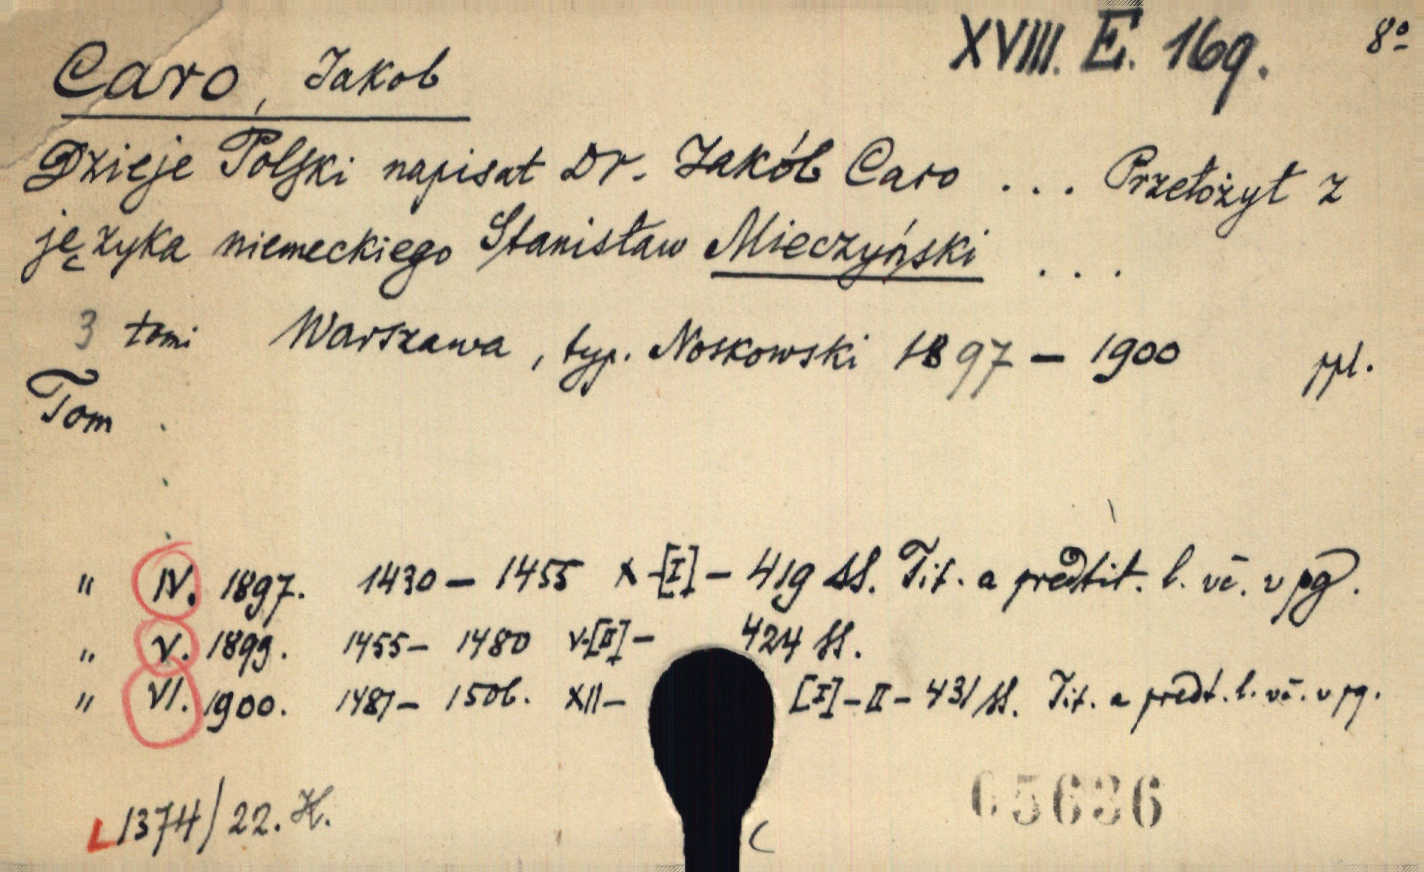 XVIII. E. 169. 8°
Caro, Jakob
Dzieje Polski napisał Dr. Jakób Caro ... Przełożył z
języka niemeckiego Stanisław Mieczyński ...
3 tomi Warszawa, typ. Noskowski 1897 – 1900 ppl.
Tom .
.
.
" IV. 1897. 1430 – 1455 X-[I] – 419 SS. Tit. a predtit. l. vč. v pg.
" V. 1899. 1455 – 1480 V-[II] – 424 SS.
" VI. 1900. 1481 – 1506. XII – [I] – II – 431 SS. Tit. a predt. l. vč. v pg.
L 1374/22. H.
65636